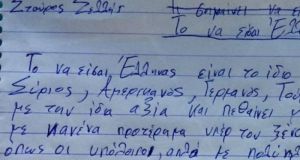 Σταύρος
Τι σημαίνει να
Το να είσαι Έλ
Το να είσαι Έλληνας είναι το ίδιο
Σύριος, Αμερικανός, Γερμανός, Τού
με την ίδια αξία και πεθαίνει
με κανένα προτέρημα υπέρ του ξένο
όπως οι υπόλοιποι, απλά με